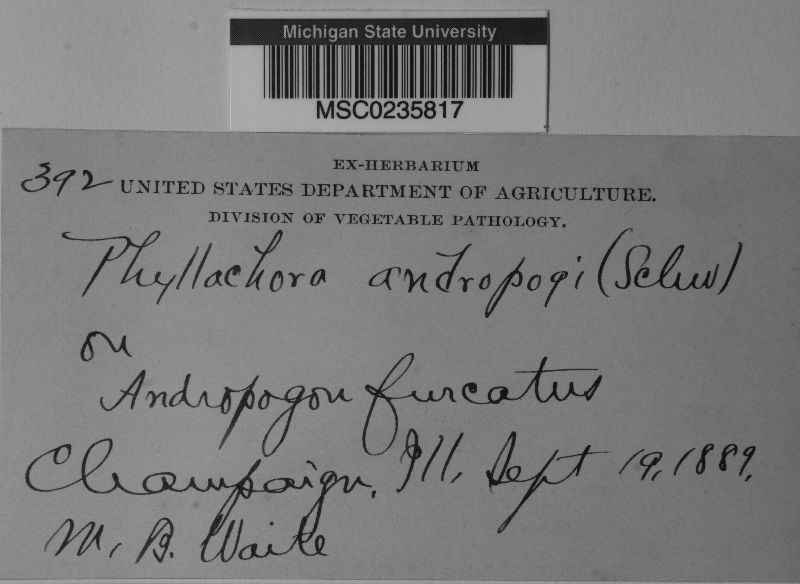 Michigan State University
MSC0235817
EX-HERBARIUM
392 UNITED STATES DEPARTMENT OF AGRICULTURE.
DIVISION OF VEGETABLE PATHOLOGY.
Phyllachora andropogi (Schw)
on
Andropogon furcatus
Champaign, Ill, Sept 19, 1889.
M. B. Waite